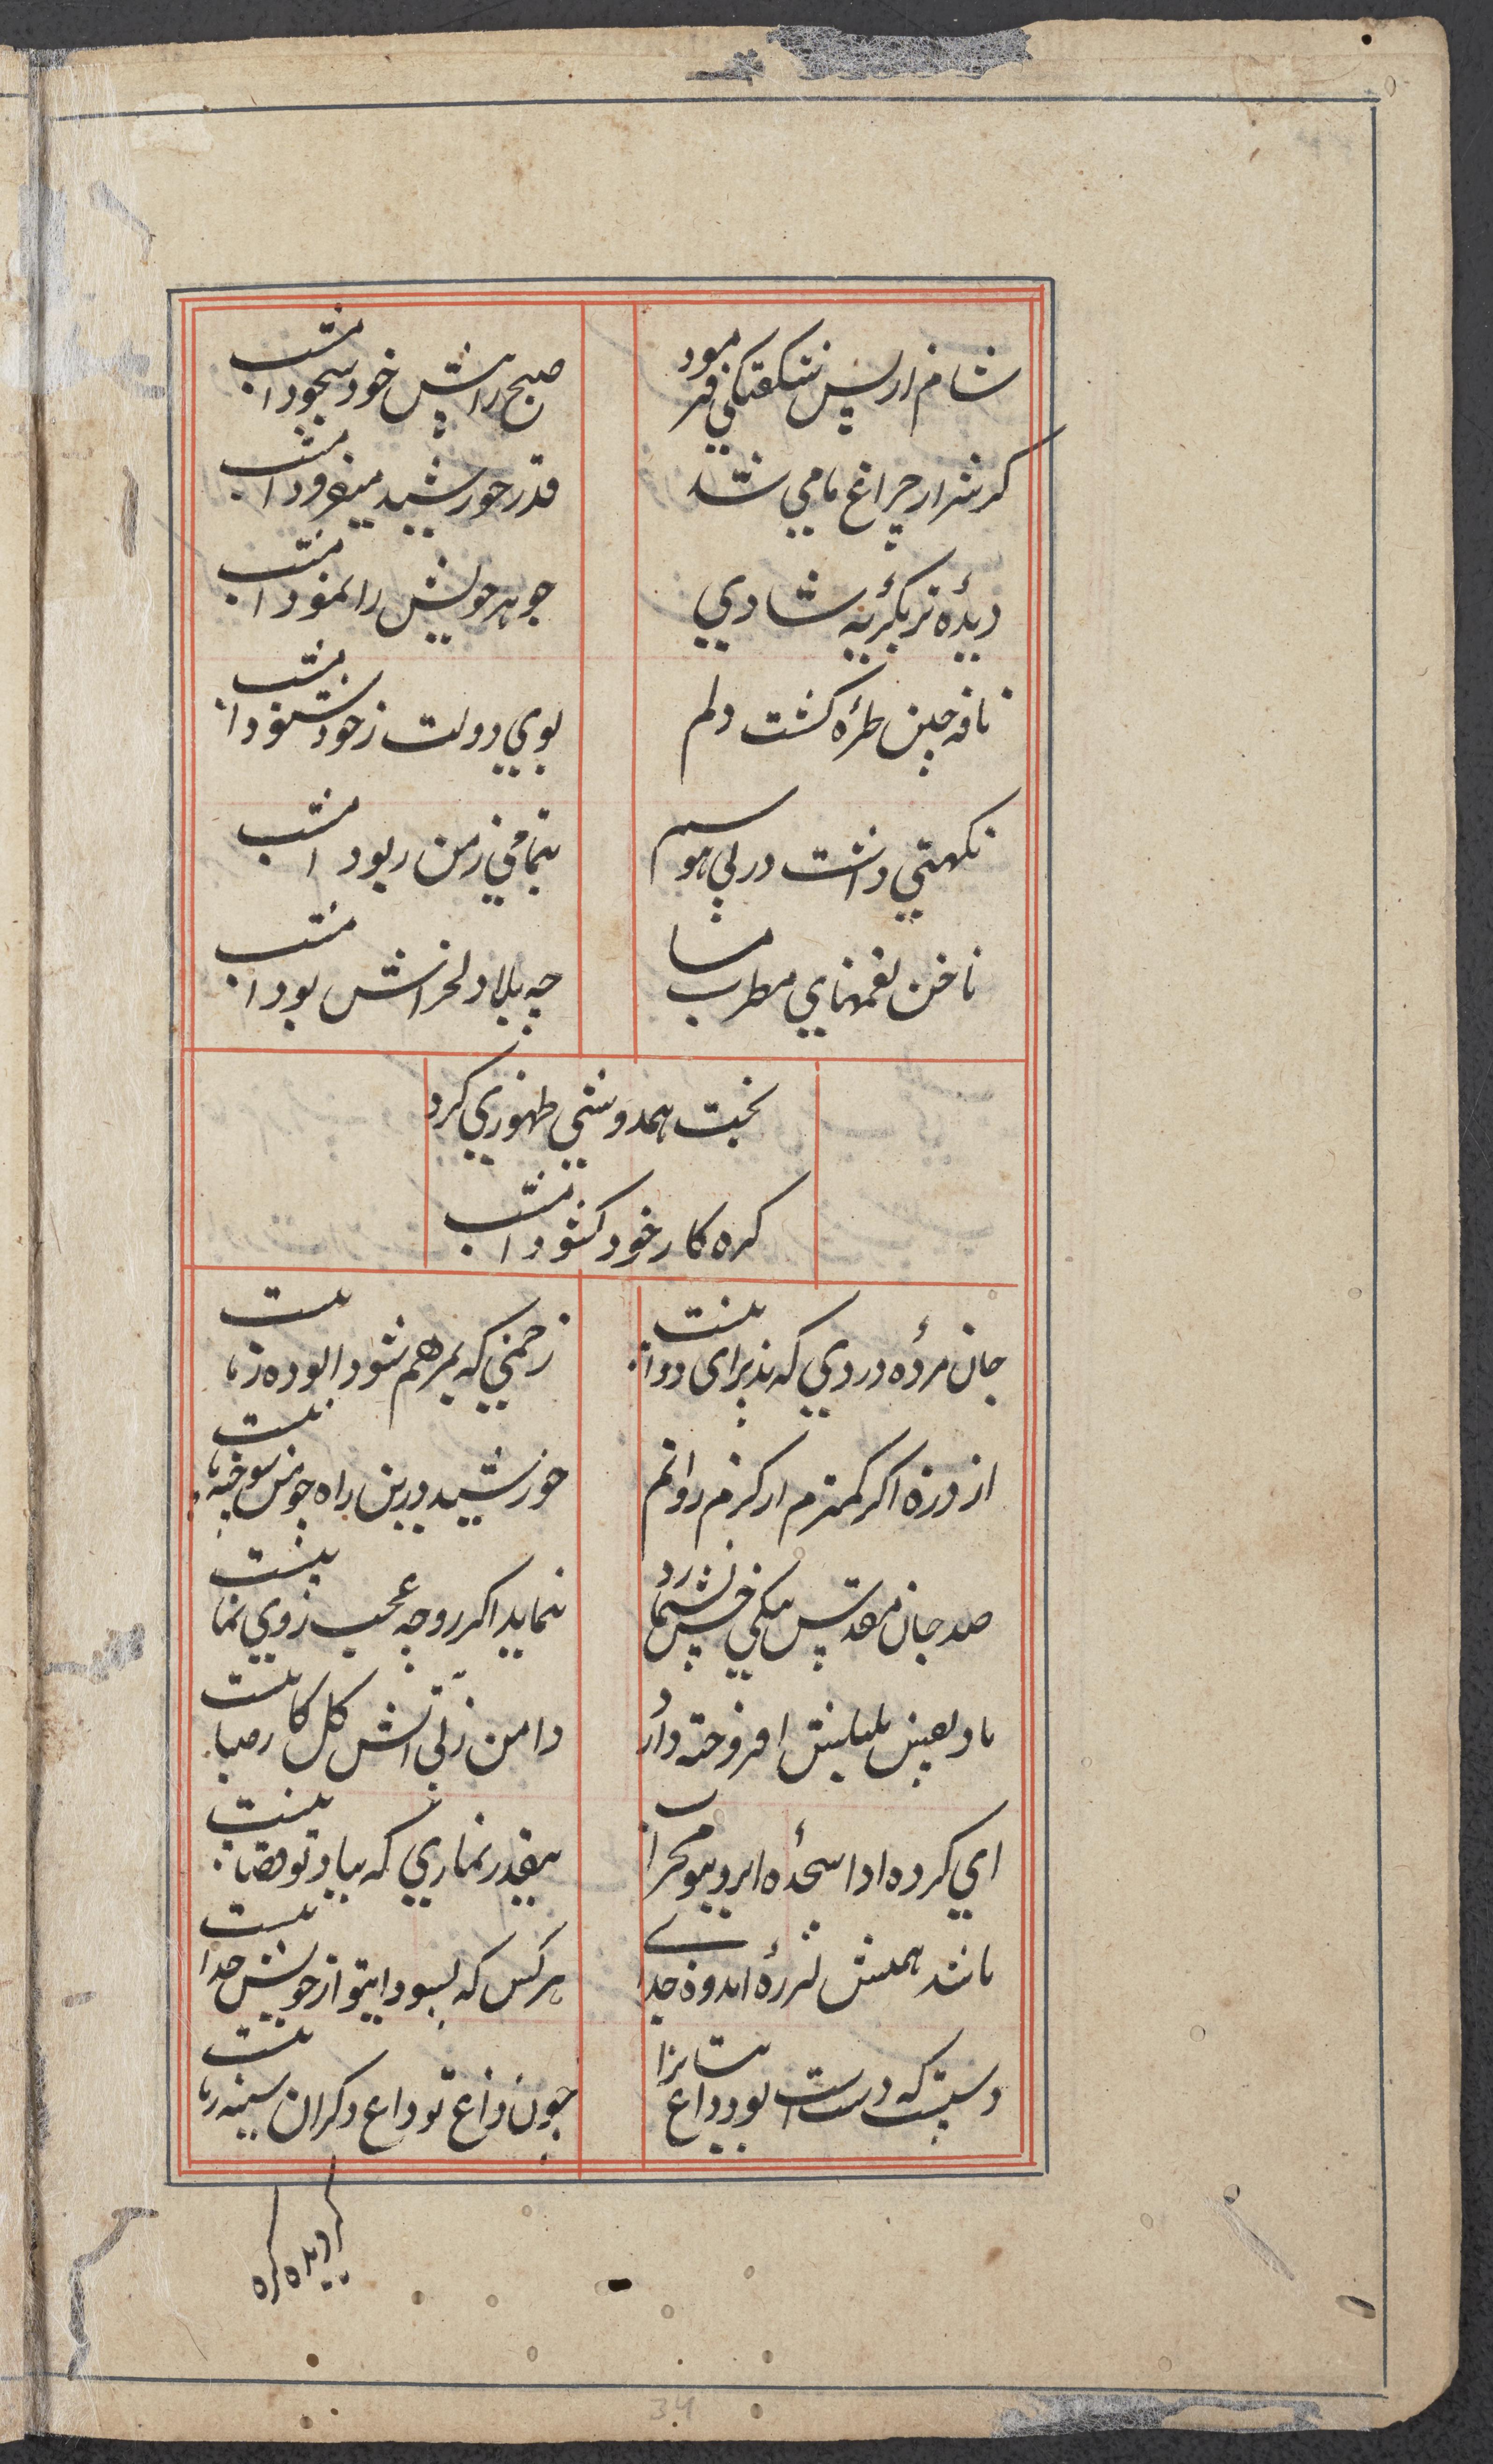 شام از بس شکفتکي فرمود
صبح را پیش خود سجود امشب
کر شرار چراغ ما مي شد
قدر خورشید میفزود امشب
دیدهٔ تر بکریهٔ شادي
جوهر خویش را نمود امشب
نافه چین طرهٔ کشت دلم
بوي دولت ز خود شنود امشب
نکهتي داشت در پي هوسم
بتمامي ز من ربود امشب
ناخن نغمهاي مطرب ما
چه بلا دلخراش بود امشب
بخت همدوشي ظهوري کرد
کره کار خود کشود امشب
جان مردهٔ دردي که پذیرای دوا نیست
زخمي که بمرهم شود الوده ز ما نیست
از ذره اکر کمترم ار کرم روانم
خورشید درین راه چو من سوخته پا نیست
صد جان مقدس بیکي خس نشمارد
ننماید اکر رو چه عجب زوي نما نیست
باد نفس بلبلش افروخته دارد
دامن زني اتش کل کار صبا نیست
اي کرده ادا سجدهٔ ابرو بمحراب
بیقدر نمازي که بیاد تو قضا نیست
مانند همش شررهٔ اندوه جدایے
هر کس که بسوداي تو از خویش جدا نیست
دستیکه درست است بود داغ
چون داغ تو داغ دکران سینه ربا نیست
کردیده کره
34